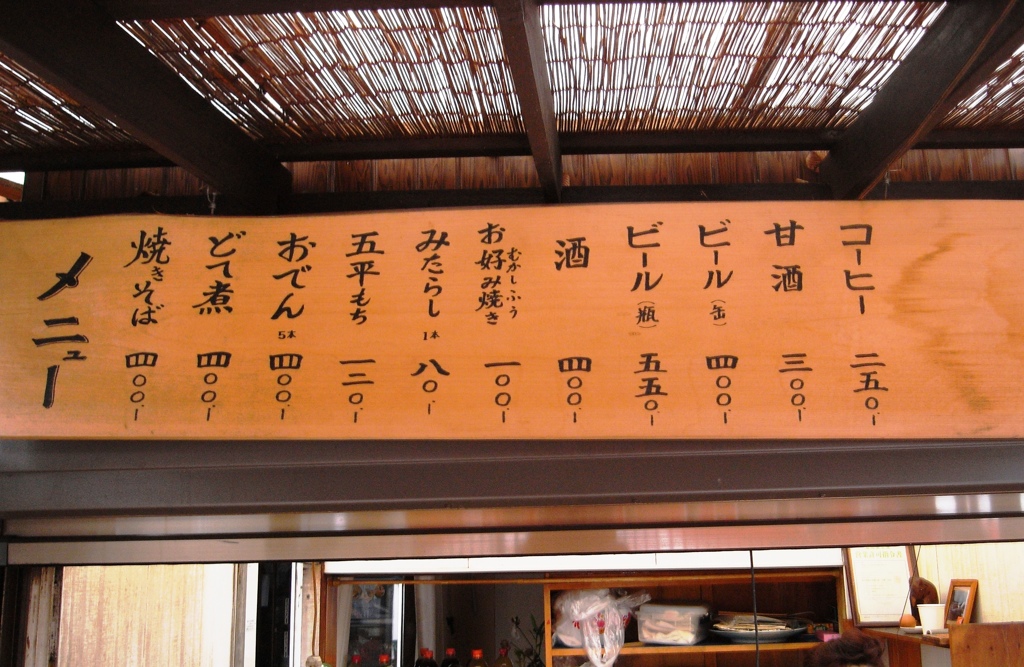 コーヒー 二五〇.-
甘酒 三〇〇.-
ビール(缶) 四〇〇.-
ビール(瓶) 五五〇.-
酒 四〇〇.-
むかしふう
お好み焼き 一〇〇.-
みたらし 1本 八〇.-
五平もち 一二〇.-
おでん 5本 四〇〇.-
どて煮 四〇〇.-
焼きそば 四〇〇.-
メニュー